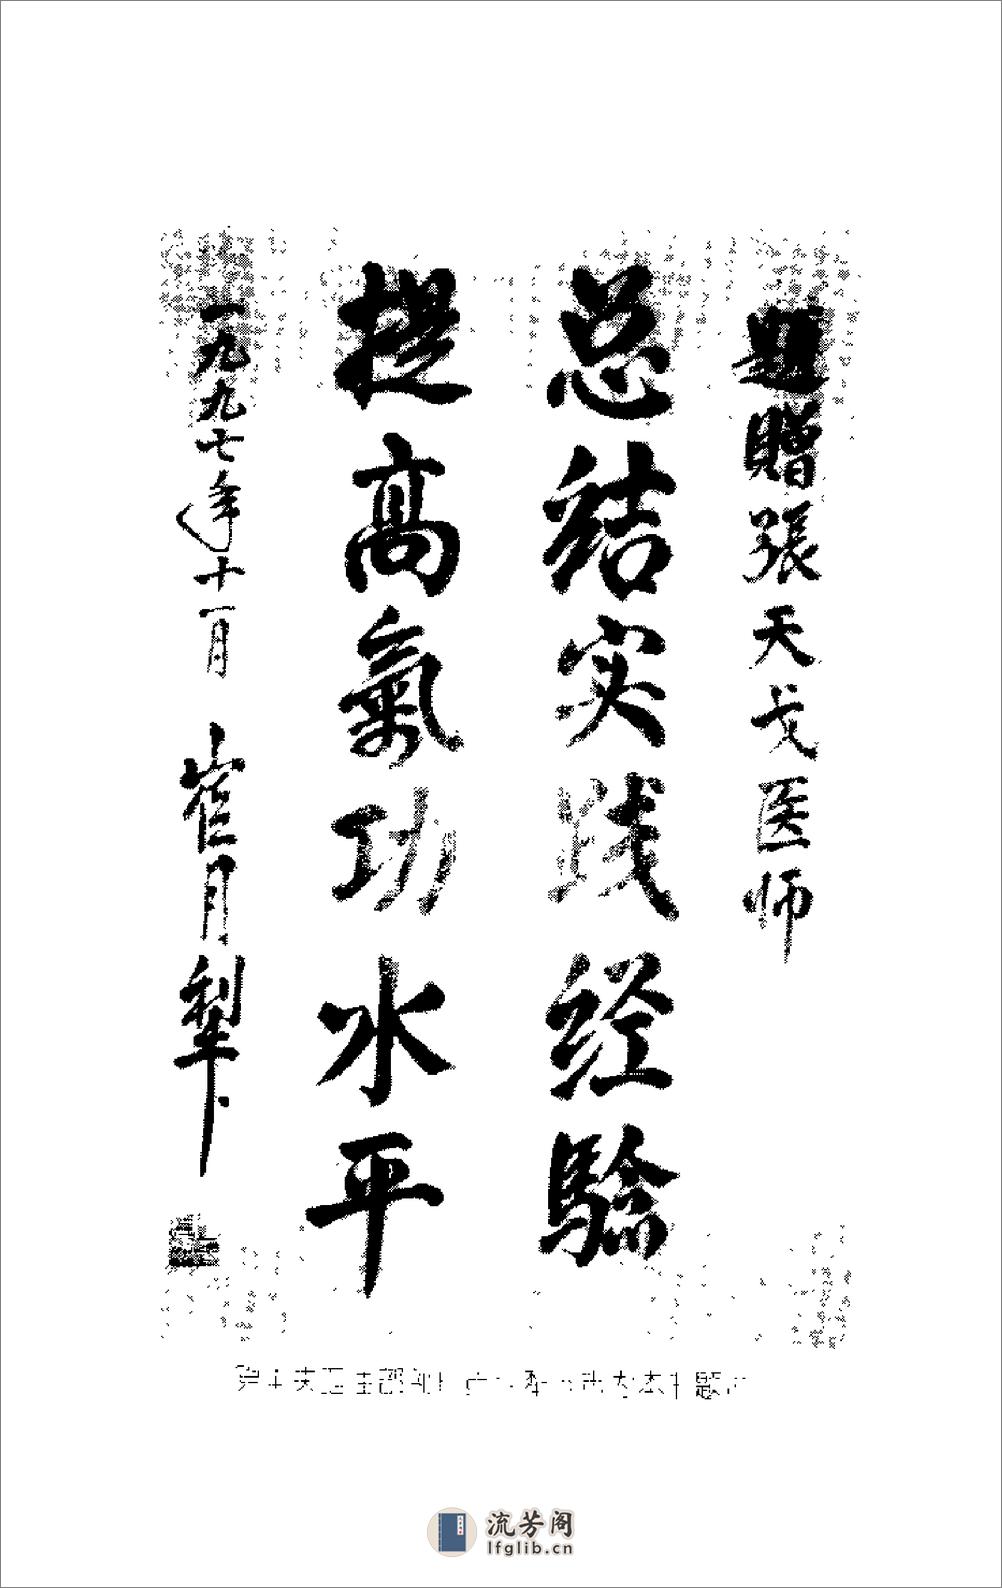 题赠張天戈医师
总结实践经验
提高氣功水平
一九九七年十一月 崔月犁
流芳阁
lfglib.cn